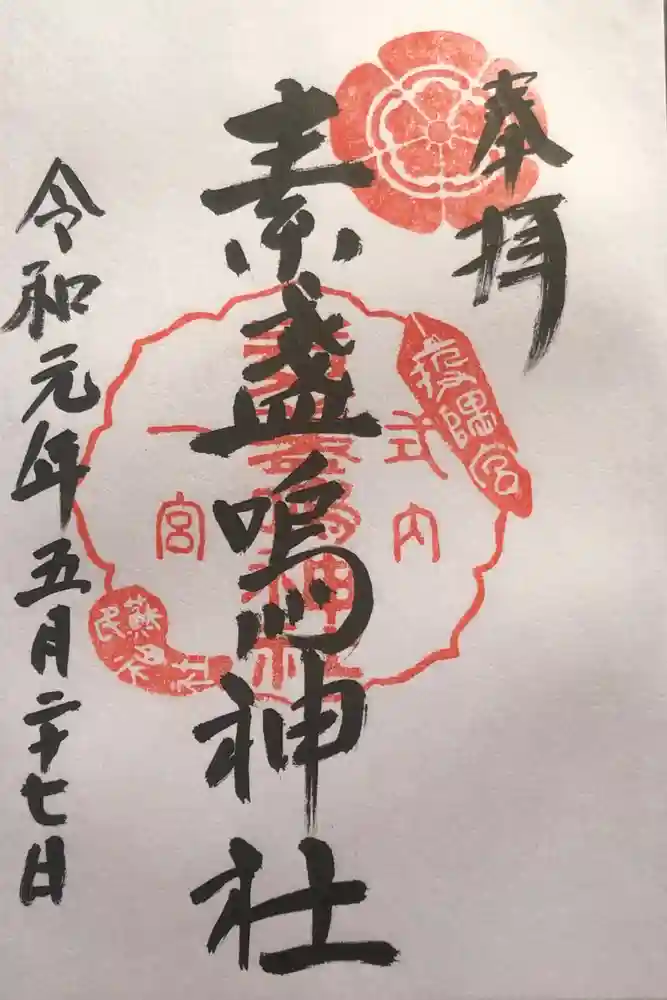 奉拝
素盞嗚神社
式内
一宮
令和元年五月二十七日